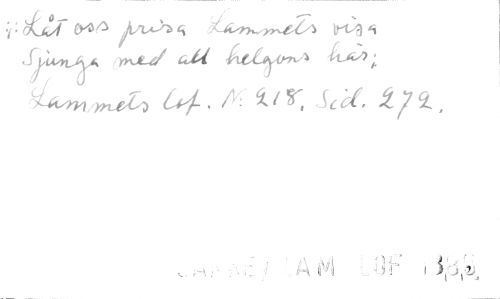 Låt oss prisa Lammets visa
Sjunga med all helgons här;
Lammets lof. N. 218. Sid. 272.
LAM LOF